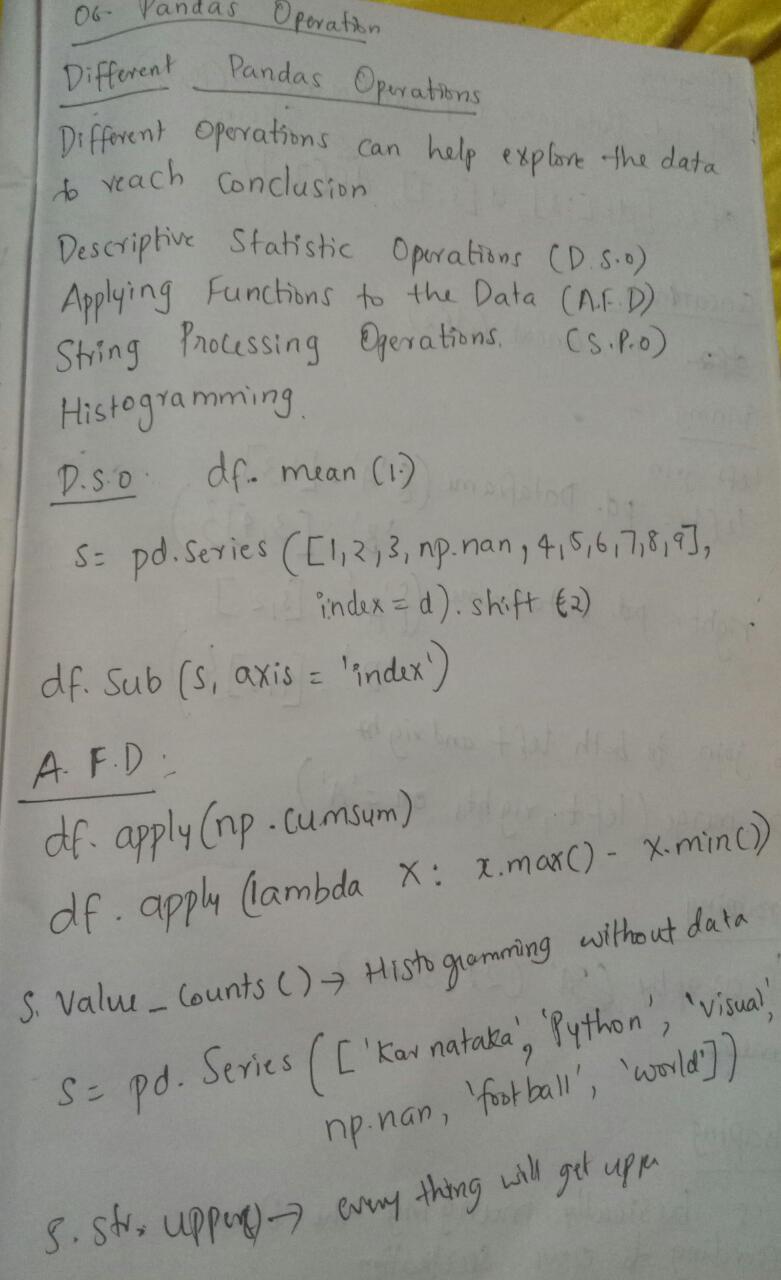 06- Pandas Operation
Different Pandas Operations
Different Operations can help explore the data
to reach Conclusion
Descriptive Statistic Operations (D.S.O)
Applying Functions to the Data (A.F.D)
String Processing Operations. (S.P.O)
Histogramming.
D.S.O. df. mean (1)
S= pd.Series ([1,2,3, np.nan, 4,5,6,7,8,9],
index = d). shift (2)
df. Sub (S, axis = 'index')
A. F.D :-
df. apply (np.cumsum)
df. apply (lambda x: x.max() - x.min())
S. Value_Counts () → Histogramming without data
S= pd. Series (['Karnataka', 'Python', 'Visual',
np.nan, 'football', 'world'])
S. str. upper() → every thing will get upper